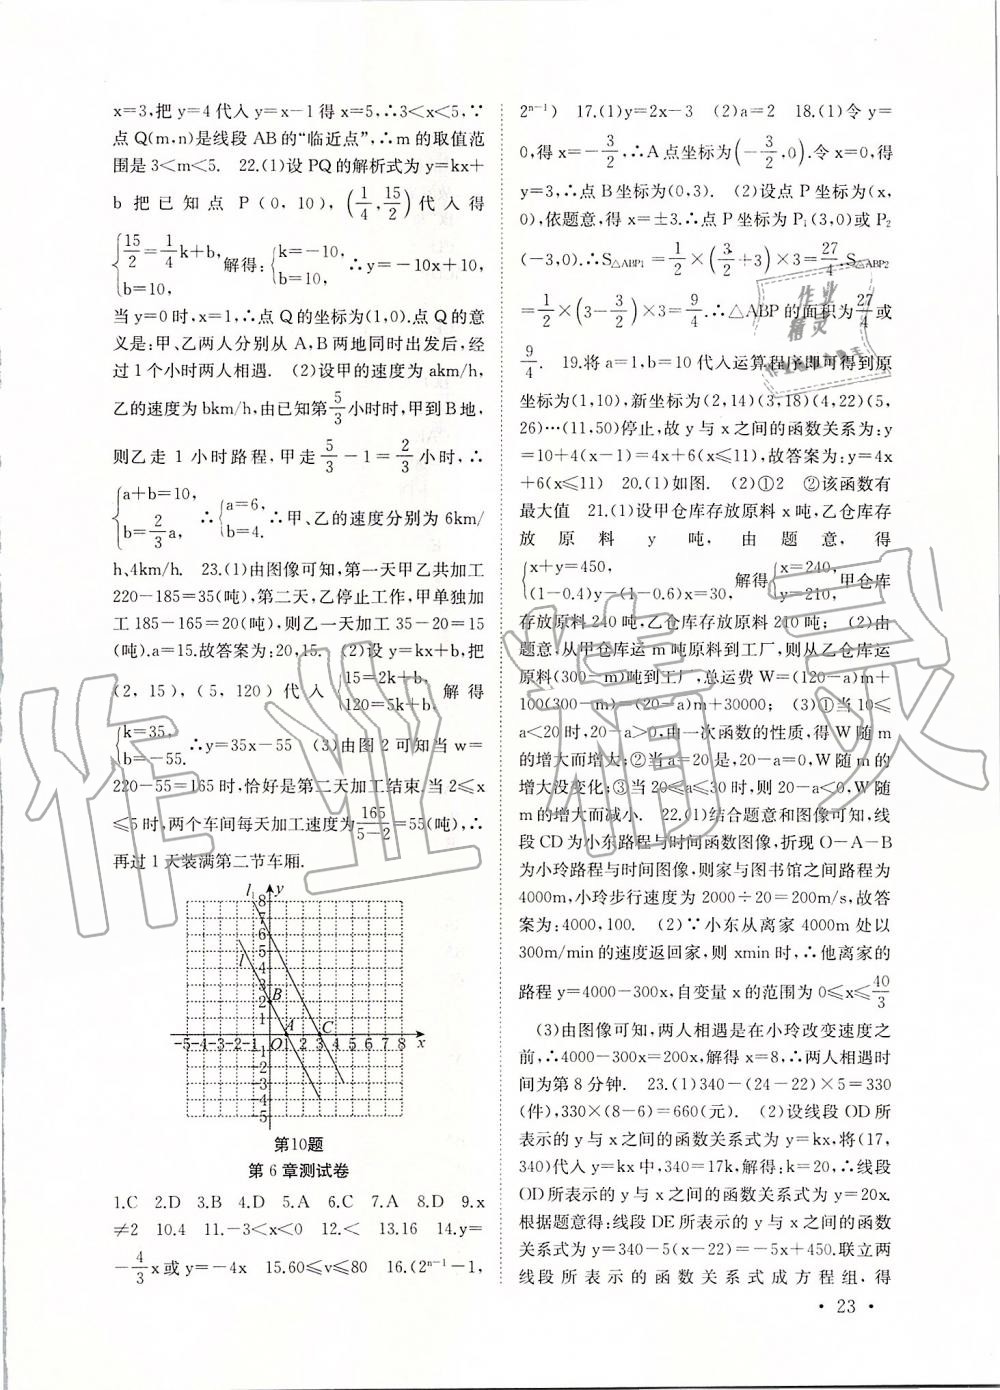 x=3,把y=4代入y=x-1得x=5,∴3<x<5,∵
点Q(m,n)是线段AB的“临近点”,∴m的取值范
围是3<m<5. 22.(1)设PQ的解析式为y=kx+
b 把已知点 P(0,10),(1/4,15/2)代入得
{15/2=1/4k+b, b=10, 解得:{k=-10, b=10, ∴y=-10x+10,
当y=0时,x=1,∴点Q的坐标为(1,0).点Q的意
义是:甲、乙两人分别从A,B两地同时出发后,经
过1个小时两人相遇. (2)设甲的速度为akm/h,
乙的速度为bkm/h,由已知第5/3小时时,甲到B地,
则乙走1小时路程,甲走5/3-1=2/3小时,∴
{a+b=10, b=2/3a, ∴{a=6, b=4. ∴甲、乙的速度分别为6km/
h、4km/h. 23.(1)由图像可知,第一天甲乙共加工
220-185=35(吨),第二天,乙停止工作,甲单独加
工185-165=20(吨),则乙一天加工35-20=15
(吨).a=15.故答案为:20,15. (2)设y=kx+b,把
(2,15),(5,120)代入{15=2k+b, 120=5k+b. 解得
{k=35, b=-55. ∴y=35x-55 (3)由图2可知当w=
220-55=165时,恰好是第二天加工结束.当2≤x
≤5时,两个车间每天加工速度为165/(5-2)=55(吨),∴
再过1天装满第二节车厢.
l₁ y
8
7
6
5
4
3
2
1
l B A C
-5-4-3-2-1 O 1 2 3 4 5 6 7 8 x
-1
-2
-3
-4
-5
第10题
第6章测试卷
1.C 2.D 3.B 4.D 5.A 6.C 7.A 8.D 9.x
≠2 10.4 11.-3<x<0 12.< 13.16 14.y=
-4/3x或y=-4x 15.60≤v≤80 16.(2ⁿ⁻¹-1,
2ⁿ⁻¹) 17.(1)y=2x-3 (2)a=2 18.(1)令y=
0,得x=-3/2,∴A点坐标为(-3/2,0).令x=0,得
y=3,∴点B坐标为(0,3). (2)设点P坐标为(x,
0),依题意,得x=±3.∴点P坐标为P₁(3,0)或P₂
(-3,0).∴S△ABP₁=1/2×(3/2+3)×3=27/4.S△ABP₂
=1/2×(3-3/2)×3=9/4.∴△ABP的面积为27/4或
9/4. 19.将a=1,b=10代入运算程序即可得到原
坐标为(1,10),新坐标为(2,14)(3,18)(4,22)(5,
26)…(11,50)停止,故y与x之间的函数关系为:y
=10+4(x-1)=4x+6(x≤11),故答案为:y=4x
+6(x≤11) 20.(1)如图. (2)①2 ②该函数有
最大值 21.(1)设甲仓库存放原料x吨,乙仓库存
放原料 y 吨,由题意,得
{x+y=450, (1-0.4)y-(1-0.6)x=30, 解得{x=240, y=210, 甲仓库
存放原料240吨,乙仓库存放原料210吨; (2)由
题意,从甲仓库运m吨原料到工厂,则从乙仓库运
原料(300-m)吨到工厂,总运费W=(120-a)m+
100(300-m)=(20-a)m+30000; (3)①当10≤
a<20时,20-a>0,由一次函数的性质,得W随m
的增大而增大;②当a=20是,20-a=0,W随m的
增大没变化;③当20≤a≤30时,则20-a<0,W随
m的增大而减小. 22.(1)结合题意和图像可知,线
段CD为小东路程与时间函数图像,折现O-A-B
为小玲路程与时间图像,则家与图书馆之间路程为
4000m,小玲步行速度为2000÷20=200m/s,故答
案为:4000,100. (2)∵小东从离家4000m处以
300m/min的速度返回家,则xmin时,∴他离家的
路程y=4000-300x,自变量x的范围为0≤x≤40/3
(3)由图像可知,两人相遇是在小玲改变速度之
前,∴4000-300x=200x,解得x=8,∴两人相遇时
间为第8分钟. 23.(1)340-(24-22)×5=330
(件),330×(8-6)=660(元). (2)设线段OD所
表示的y与x之间的函数关系式为y=kx,将(17,
340)代入y=kx中,340=17k,解得:k=20,∴线段
OD所表示的y与x之间的函数关系式为y=20x.
根据题意得:线段DE所表示的y与x之间的函数
关系式为y=340-5(x-22)=-5x+450.联立两
线段所表示的函数关系式成方程组,得
· 23 ·
作业精灵
作业
精灵